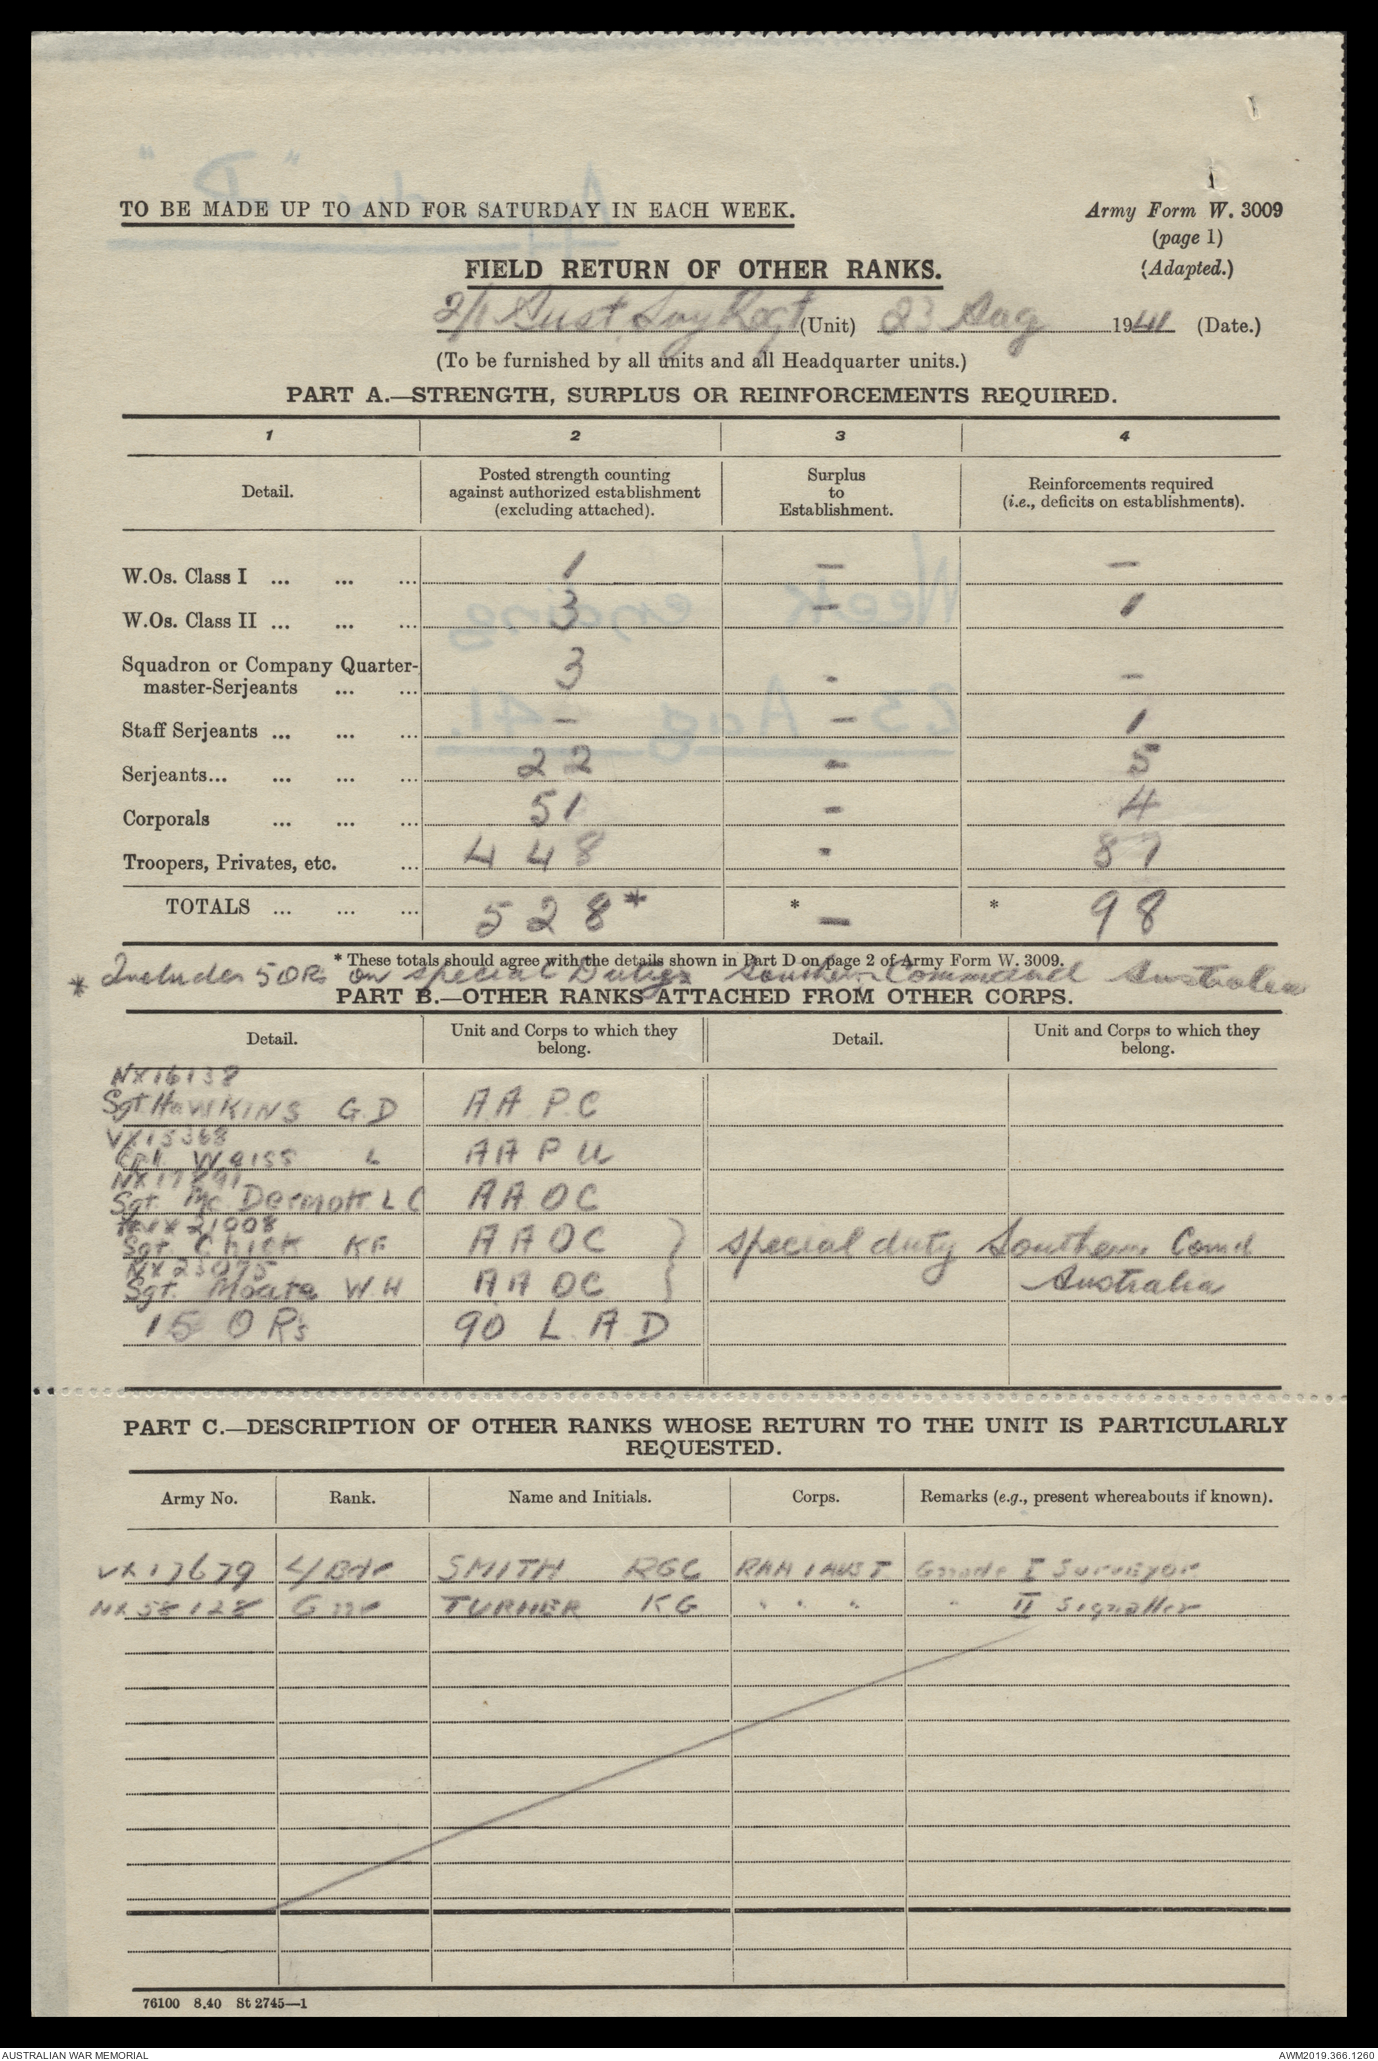 TO BE MADE UP TO AND FOR SATURDAY IN EACH WEEK.
Army Form W. 3009
(page 1)
(Adapted.)
FIELD RETURN OF OTHER RANKS.
2/1 Aust Svy Regt (Unit) 23 Aug 1941 (Date.)
(To be furnished by all units and all Headquarter units.)
PART A.—STRENGTH, SURPLUS OR REINFORCEMENTS REQUIRED.
1 2 3 4
Detail. Posted strength counting against authorized establishment (excluding attached). Surplus to Establishment. Reinforcements required (i.e., deficits on establishments).
W.Os. Class I ... ... ... 1 - -
W.Os. Class II ... ... ... 3 - 1
Squadron or Company Quarter-
master-Serjeants ... ... 3 - -
Staff Serjeants ... ... ... - - 1
Serjeants... ... ... ... 22 - 5
Corporals ... ... ... 51 - 4
Troopers, Privates, etc. ... 448 - 87
TOTALS ... ... ... 528* * - * 98
* These totals should agree with the details shown in Part D on page 2 of Army Form W. 3009.
* Includes 5 ORs on special Duties Southern Command Australia
PART B.—OTHER RANKS ATTACHED FROM OTHER CORPS.
Detail. Unit and Corps to which they belong. Detail. Unit and Corps to which they belong.
NX16138
Sgt HAWKINS G.D AA P.C
VX15368
Cpl. Weiss L AA P U
NX17891
Sgt. Mc Dermott L C AA OC
21008
Sgt. Chick KF AA OC } special duty Southern Comd
NX23075
Sgt. W.H AA OC } Australia
15 ORs 90 L.A.D
PART C.—DESCRIPTION OF OTHER RANKS WHOSE RETURN TO THE UNIT IS PARTICULARLY
REQUESTED.
Army No. Rank. Name and Initials. Corps. Remarks (e.g., present whereabouts if known).
VX17679 L/Bdr SMITH RGC RAA 1 AUST Grade I Surveyor
NX58128 Gnr TURNER KG " " " " II Signaller
76100 8.40 St 2745—1
AUSTRALIAN WAR MEMORIAL
AWM2019.366.1260